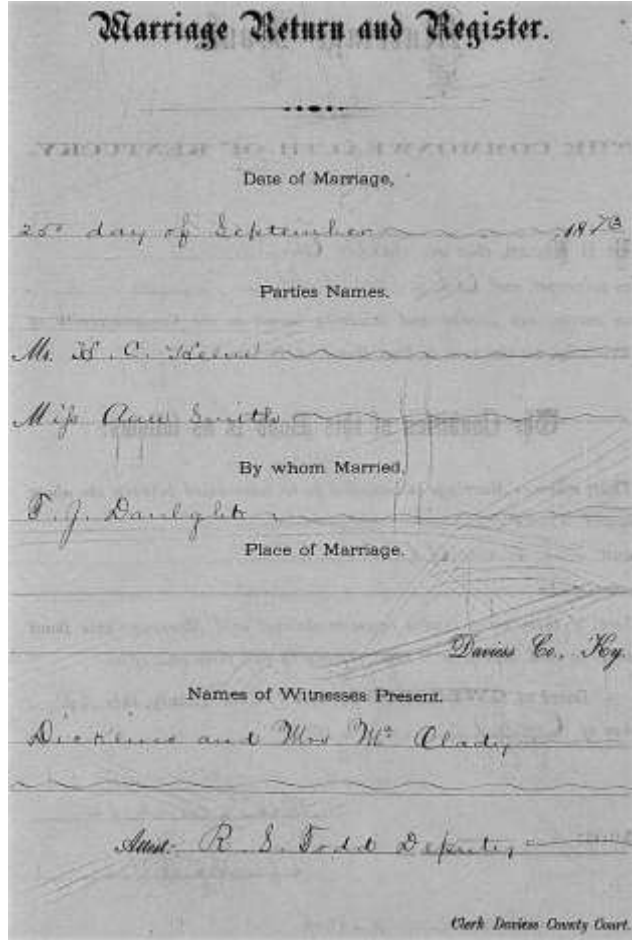 Marriage Return and Register.
Date of Marriage,
25 day of September 1873
Parties Names.
Mr. H. C.
Miss Ann Smith
By whom Married,
T. J.
Place of Marriage.
Daviess Co., Ky.
Names of Witnesses Present.
Dickens and Mrs Mc
Attest: R. S. Todd Deputy
Clerk Daviess County Court.